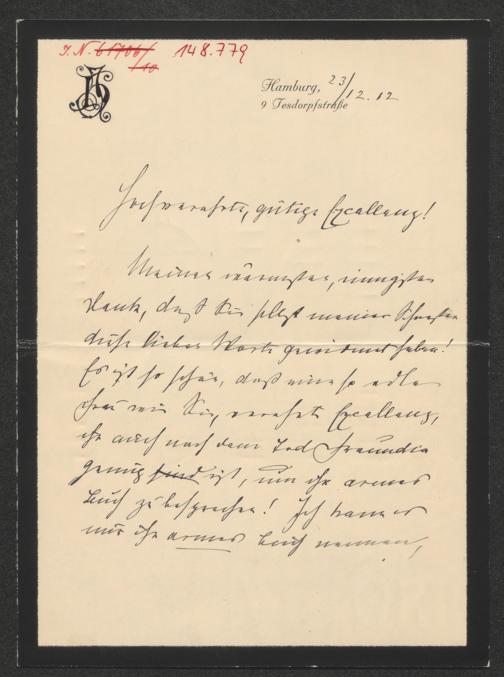 J. N. 61706/
/10
148.779
Hamburg, 23/12.12
9 Tesdorpfstraße
Hochverehrte, gütige Excellenz!
Meinen wärmsten, innigsten
Dank, daß Sie selbst meiner Schwester
diese lieben Worte gewidmet haben!
Es ist so schön, daß eine so edle
Frau wie Sie, verehrte Excellenz,
ihr auch nach dem Tod Freundin
genug sind ist, um ihr armes
Buch zu besprechen! Ich kann es
nur ihr armes Buch nennen,